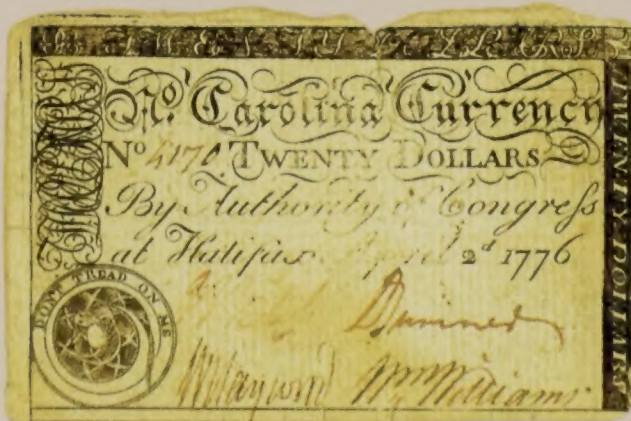 TWENTY DOLLARS
No. Carolina Currency
No 4170 TWENTY DOLLARS
By Authority of Congress
at Halifax April 2d 1776
DON'T TREAD ON ME
Sumner
W Haywood Wm Williams
TWENTY DOLLARS